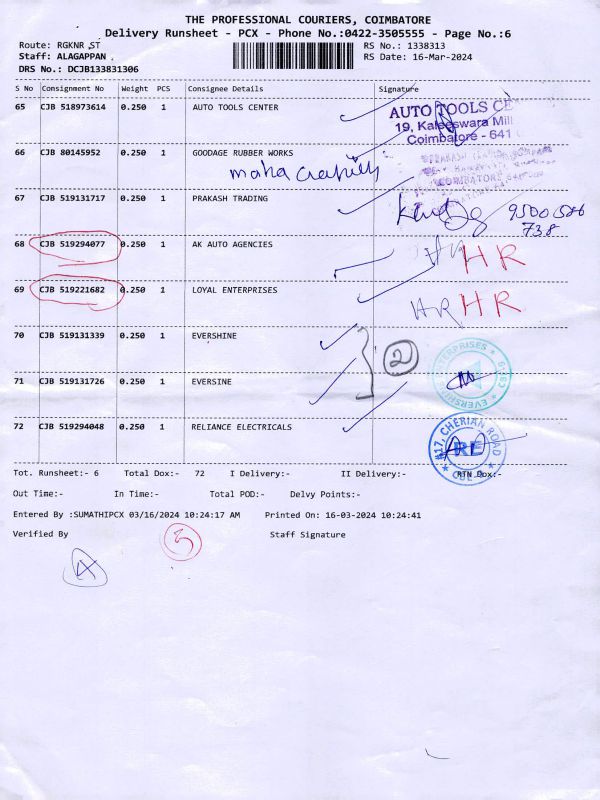 THE PROFESSIONAL COURIERS, COIMBATORE
Delivery Runsheet - PCX - Phone No.:0422-3505555 - Page No.:6
Route: RGKNR ST RS No.: 1338313
Staff: ALAGAPPAN RS Date: 16-Mar-2024
DRS No.: DCJB133831306
S No Consignment No Weight PCS Consignee Details Signature
65 CJB 518973614 0.250 1 AUTO TOOLS CENTER
AUTO TOOLS CE
19, Kaleeswara Mill
Coimbatore - 641
66 CJB 80145952 0.250 1 GOODAGE RUBBER WORKS
maha
COIMBATORE
67 CJB 519131717 0.250 1 PRAKASH TRADING
9500586
738
68 CJB 519294077 0.250 1 AK AUTO AGENCIES
HR
69 CJB 519221682 0.250 1 LOYAL ENTERPRISES
HR
70 CJB 519131339 0.250 1 EVERSHINE
2
71 CJB 519131726 0.250 1 EVERSINE
72 CJB 519294048 0.250 1 RELIANCE ELECTRICALS
#17, CHERIAN ROAD
RE
Tot. Runsheet:- 6 Total Dox:- 72 I Delivery:- II Delivery:- RTN Dox:-
Out Time:- In Time:- Total POD:- Delvy Points:-
Entered By :SUMATHIPCX 03/16/2024 10:24:17 AM Printed On: 16-03-2024 10:24:41
Verified By Staff Signature